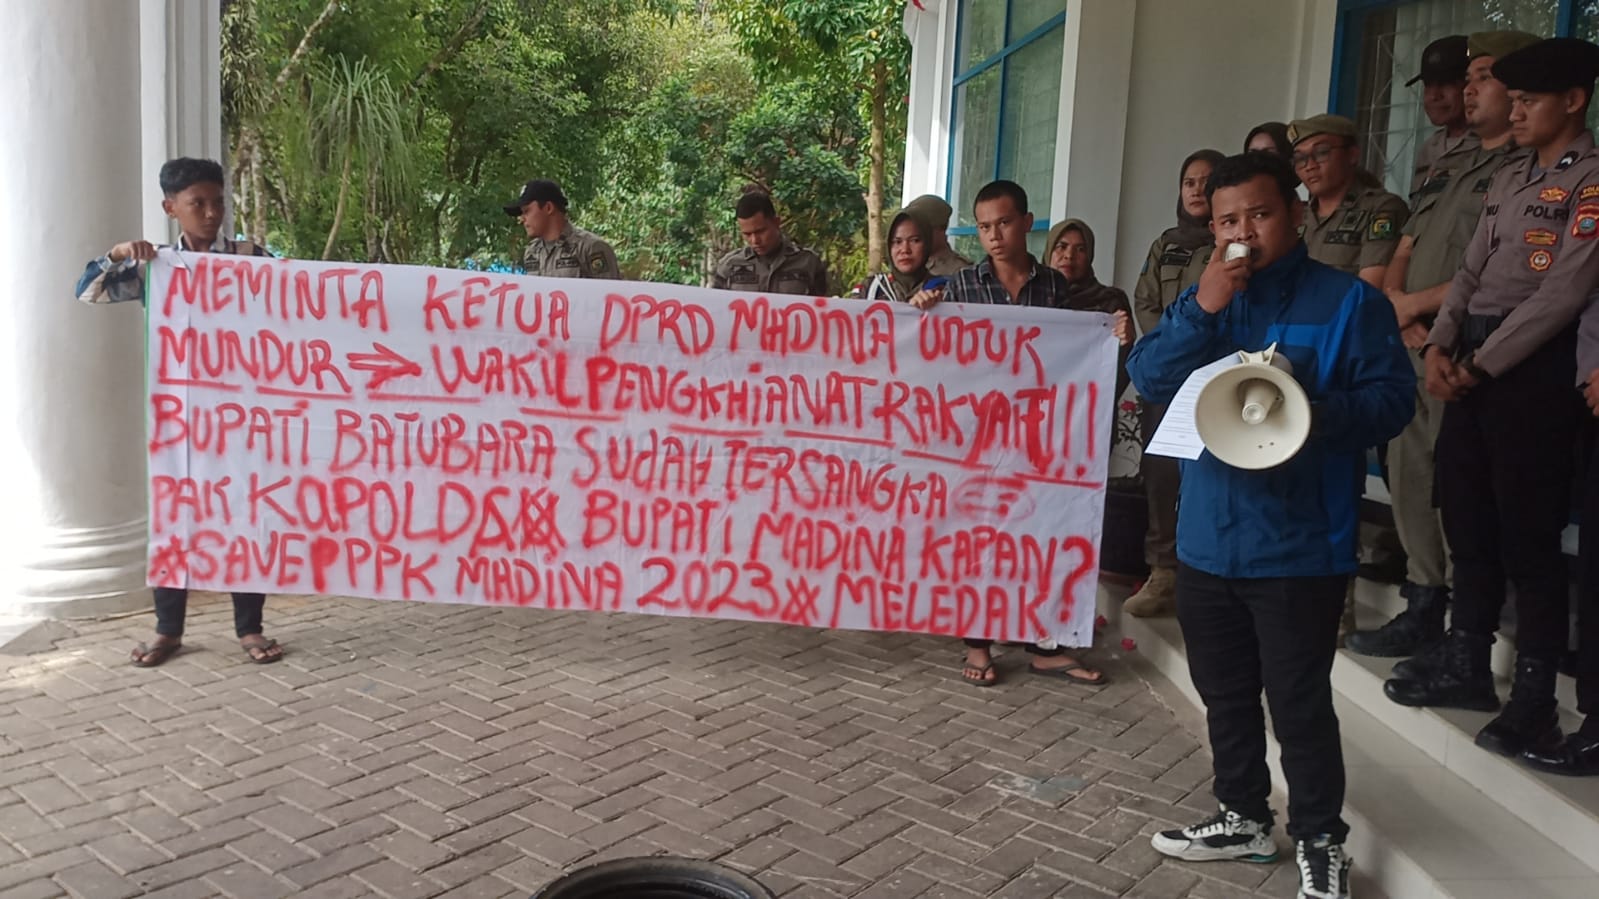 MEMINTA KETUA DPRD MADINA UNTUK
MUNDUR → WAKIL PENGKHIANAT RAKYAT!!!
BUPATI BATUBARA SUDAH TERSANGKA
PAK KAPOLDA BUPATI MADINA KAPAN?
#SAVEPPPK MADINA 2023 # MELEDAK
POLRI